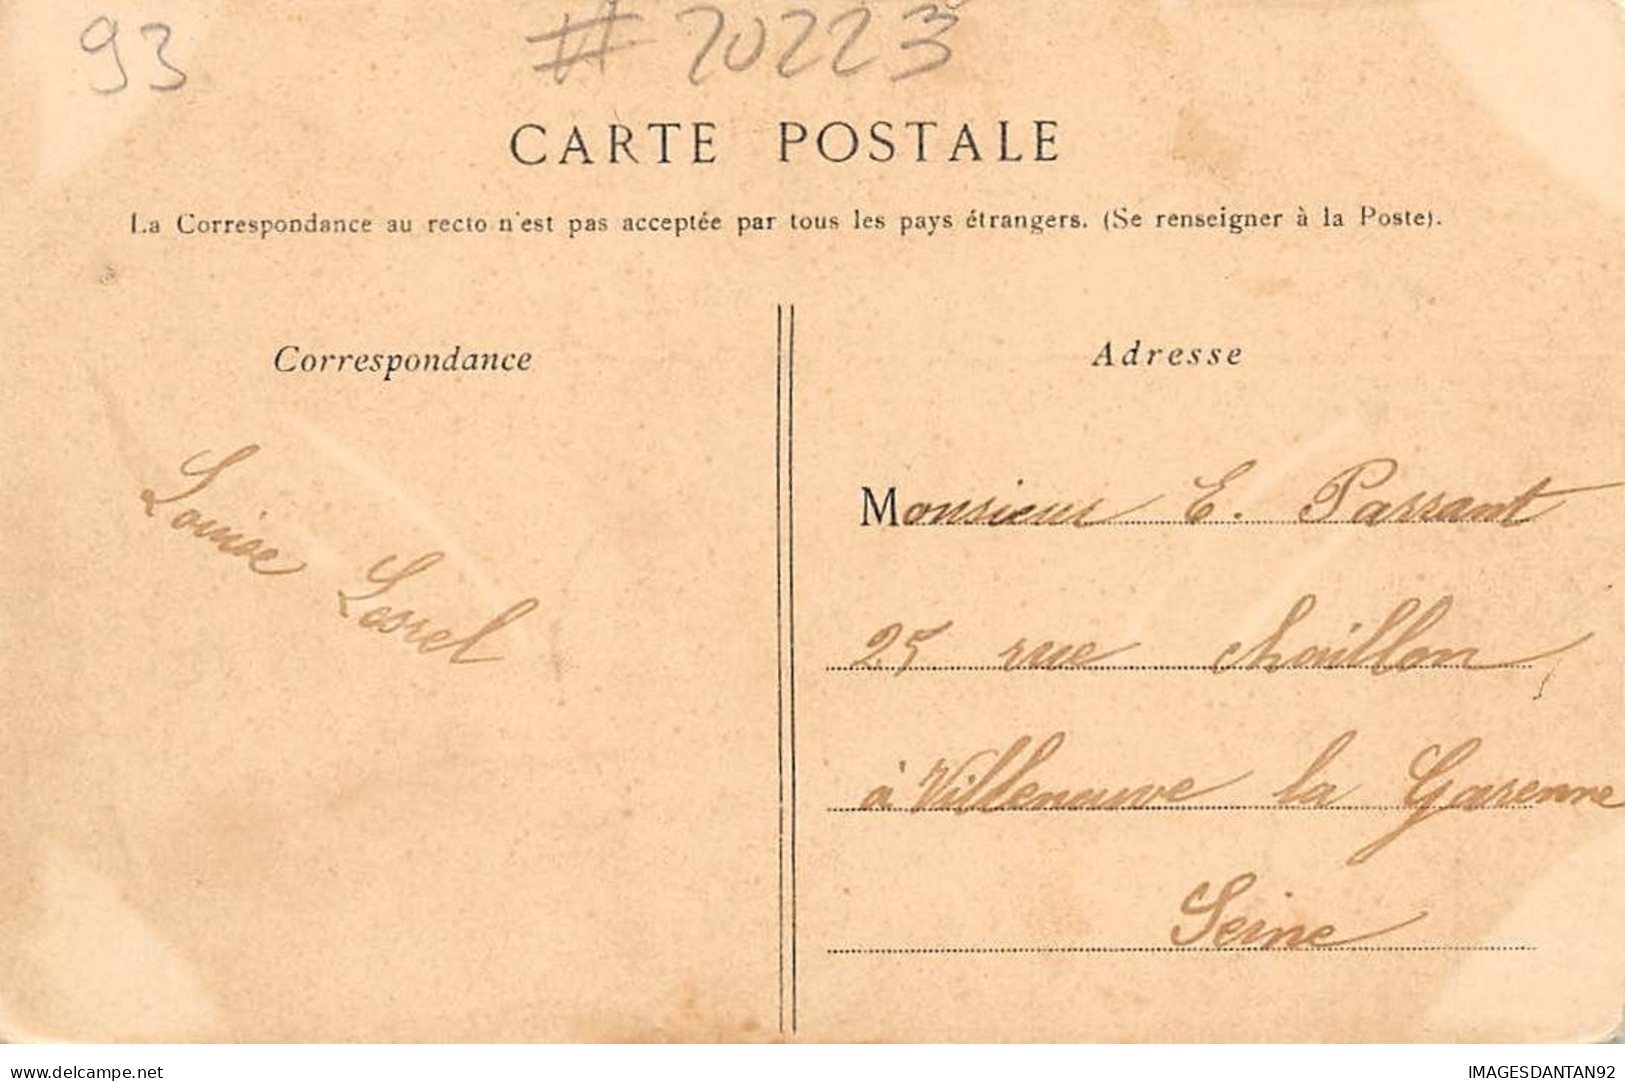 93
# 70223
CARTE POSTALE
La Correspondance au recto n'est pas acceptée par tous les pays étrangers. (Se renseigner à la Poste).
Correspondance
Louise Lesrel
Adresse
Monsieur E. Passant
25 rue Chaillon
à Villeneuve la Garenne
Seine
delcampe.net
IMAGESDANTAN92